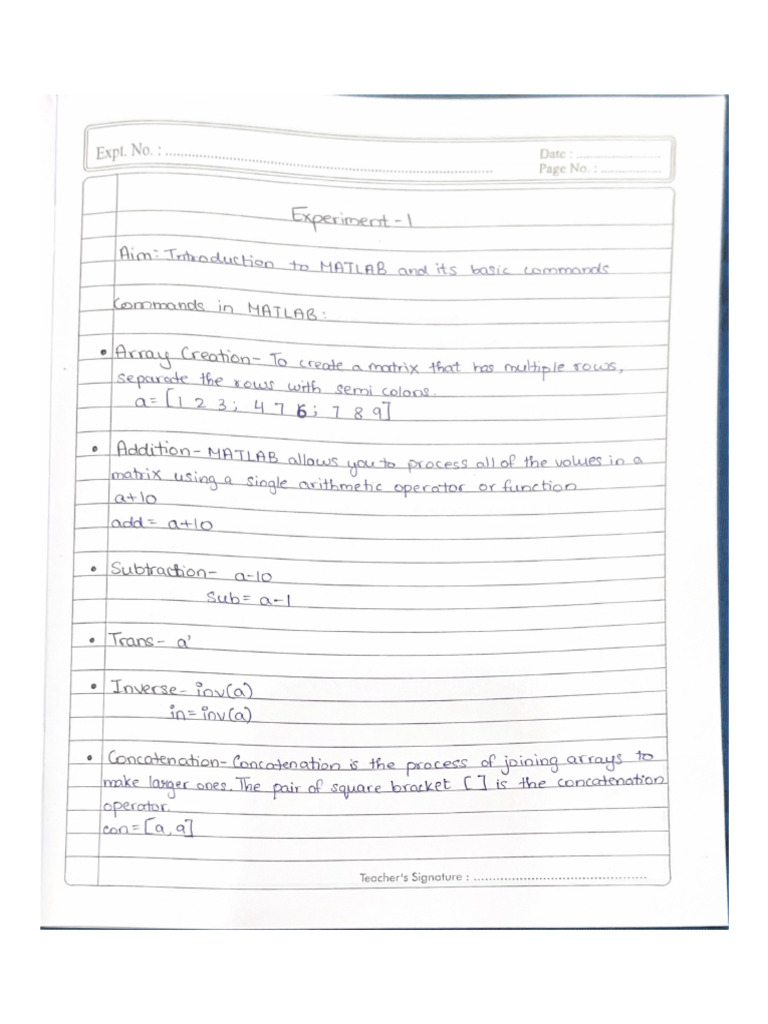 Expt. No. : ............................................................
Date : ....................
Page No. : ................
Experiment - 1
Aim: Introduction to MATLAB and its basic commands
Commands in MATLAB:
• Array Creation - To create a matrix that has multiple rows,
separate the rows with semi colons.
a = [1 2 3; 4 7 6; 7 8 9]
• Addition - MATLAB allows you to process all of the values in a
matrix using a single arithmetic operator or function
a+10
add = a+10
• Subtraction - a-10
Sub = a-1
• Trans - a'
• Inverse - inv(a)
in = inv(a)
• Concatenation - Concatenation is the process of joining arrays to
make larger ones. The pair of square bracket [ ] is the concatenation
operator.
con = [a, a]
Teacher's Signature : ............................................